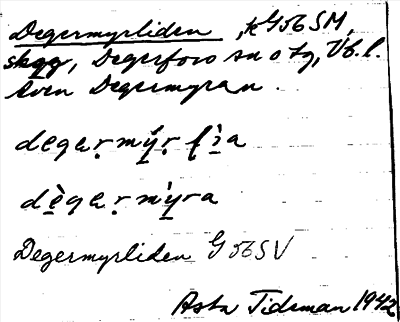 Degermyrliden, k G56 SM,
skgg, Degerfors sn o tg, Vb. l.
Även Degermyran.
degạrmy̱̋ṛ lìa
dè̱gạrmỳ̱ra
Degermyrliden G56SV
Asta Tideman 1942